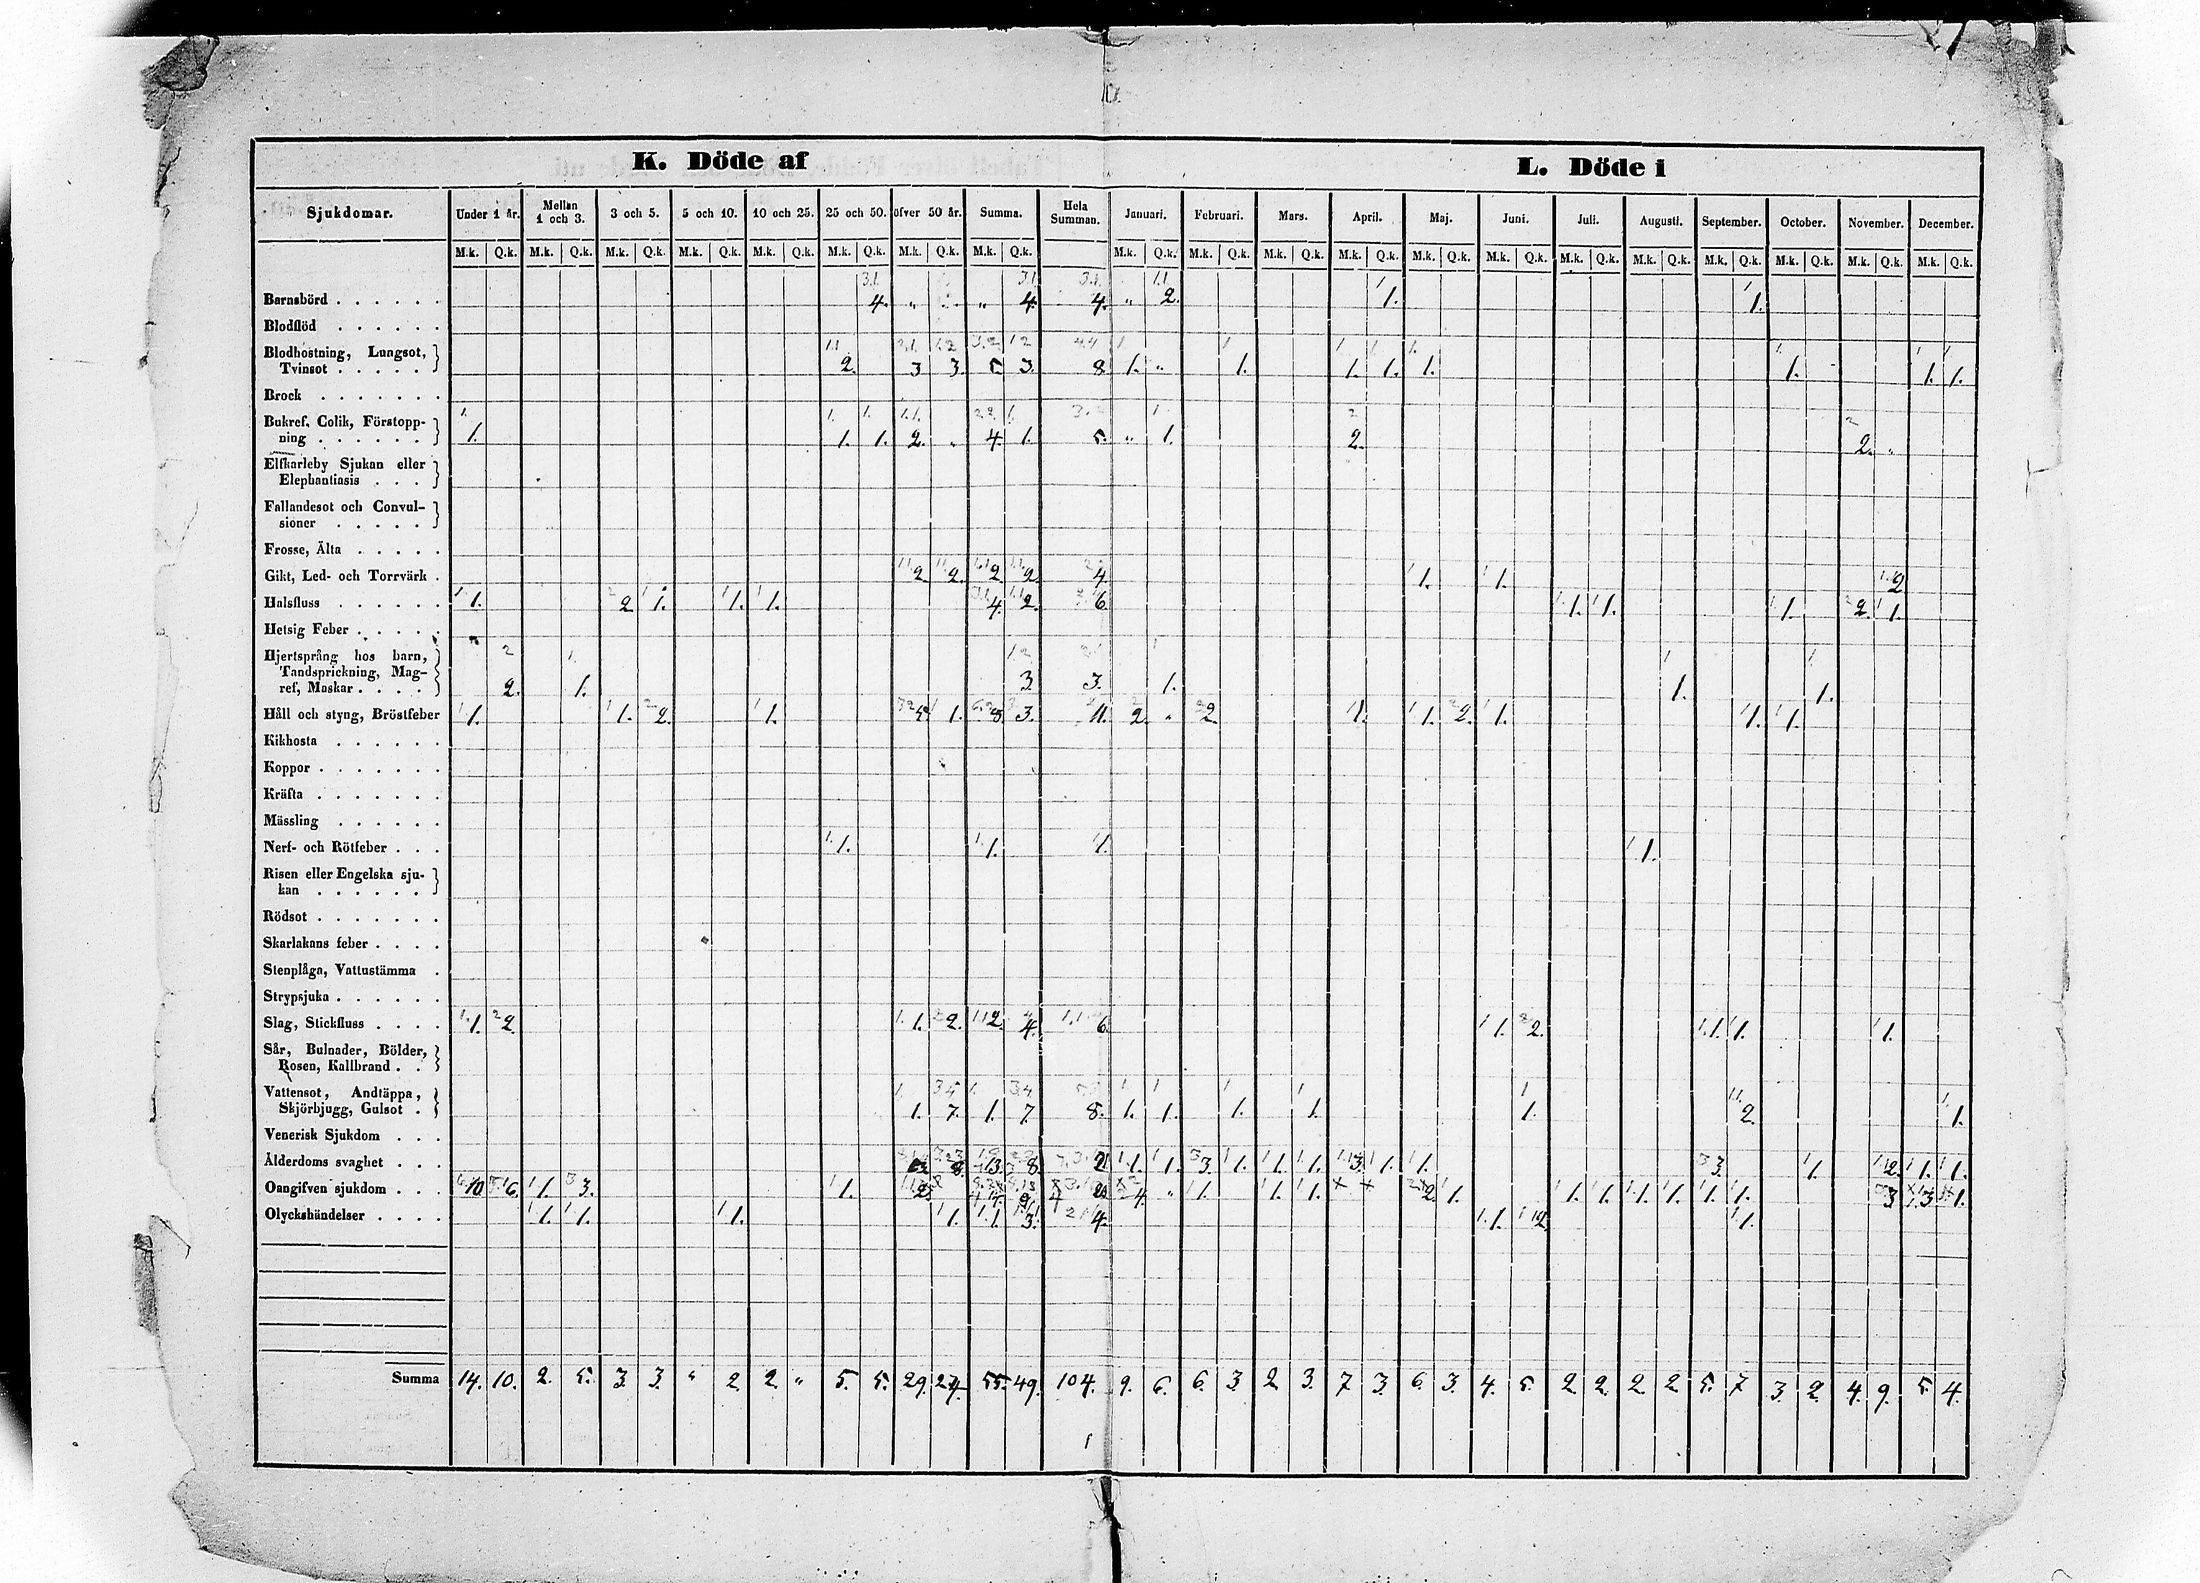 K. Döde af L. Döde i
Sjukdomar. Under 1 år. Mellan 1 och 3. 3 och 5. 5 och 10. 10 och 25. 25 och 50. öfver 50 år. Summa. Hela Summan. Januari. Februari. Mars. April. Maj. Juni. Juli. Augusti. September. October. November. December.
M.k. Q.k. M.k. Q.k. M.k. Q.k. M.k. Q.k. M.k. Q.k. M.k. Q.k. M.k. Q.k. M.k. Q.k. M.k. Q.k. M.k. Q.k. M.k. Q.k. M.k. Q.k. M.k. Q.k. M.k. Q.k. M.k. Q.k. M.k. Q.k. M.k. Q.k. M.k. Q.k. M.k. Q.k. M.k. Q.k.
Barnsbörd . . . . . . 4. „ „ 4. 4. „ 2. 1. 1.
Blodflöd . . . . . .
Blodhostning, Lungsot,
Tvinsot . . . . . 2. 3 3. 5. 3. 8. 1. „ 1. 1. 1. 1. 1. 1. 1.
Brock . . . . . . .
Bukref, Colik, Förstopp-
ning . . . . . . 1. 1. 1. 2. „ 4. 1. 5. „ 1. 2. 2. „
Elfkarleby Sjukan eller
Elephantiasis . . .
Fallandesot och Convul-
sioner . . . . .
Frosse, Älta . . . . .
Gikt, Led- och Torrvärk . 2. 2. 2. 2. 4. 1. 1. 2
Halsfluss . . . . . . 1. 2. 1. 1. 1. 4. 2. 6. 1. 1. 1. 2. 1.
Hetsig Feber . . . . .
Hjertsprång hos barn,
Tandsprickning, Mag-
ref, Maskar . . . . 2. 1. 3. 3. 1. 1. 1.
Håll och styng, Bröstfeber 1. 1. 2. 1. 5. 1. 8. 3. 11. 2. „ 2. 1. 1. 2. 1. 1. 1.
Kikhosta . . . . . .
Koppor . . . . . . .
Kräfta . . . . . . .
Mässling . . . . . .
Nerf- och Rötfeber . . . 1. 1. 1. 1.
Risen eller Engelska sju-
kan . . . . . .
Rödsot . . . . . . .
Skarlakans feber . . . .
Stenplåga, Vattustämma .
Strypsjuka . . . . . .
Slag, Stickfluss . . . . 1. 2. 1. 2. 2. 4. 6. 1. 2. 1. 1. 1.
Sår, Bulnader, Bölder,
Rosen, Kallbrand . .
Vattensot, Andtäppa,
Skjörbjugg, Gulsot . 1. 7. 1. 7. 8. 1. 1. 1. 1. 1. 2. 1.
Venerisk Sjukdom . . .
Ålderdoms svaghet . . . 8. 13. 8. 21 1. 1. 3. 1. 1. 1. 3. 1. 1. 3. 1. 2. 1. 1.
Oangifven sjukdom . . . 10 6. 1. 3. 1. 4. „ 1. 1. 1. 2. 1. 1. 1. 1. 1. 1. 1. 3 3. 1.
Olyckshändelser . . . . 1. 1. 1. 1. 1. 3. 4. 1. 2. 1.
Summa 14. 10. 2. 5. 3. 3. „ 2. 2. „ 5. 5. 29. 24. 55. 49. 104. 9. 6. 6. 3. 2. 3. 7. 3. 6. 3. 4. 5. 2. 2. 2. 2. 5. 7. 3. 2. 4. 9. 5. 4.